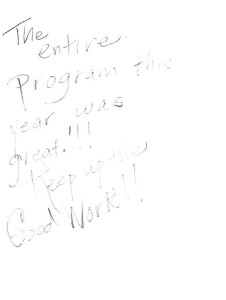 The
entire
Program this
year was
great!!!
Keep up the
Good Work!!